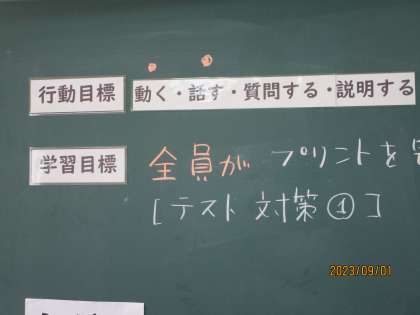 行動目標 動く・話す・質問する・説明する
学習目標 全員が プリントを
[テスト対策①]
2023/09/01